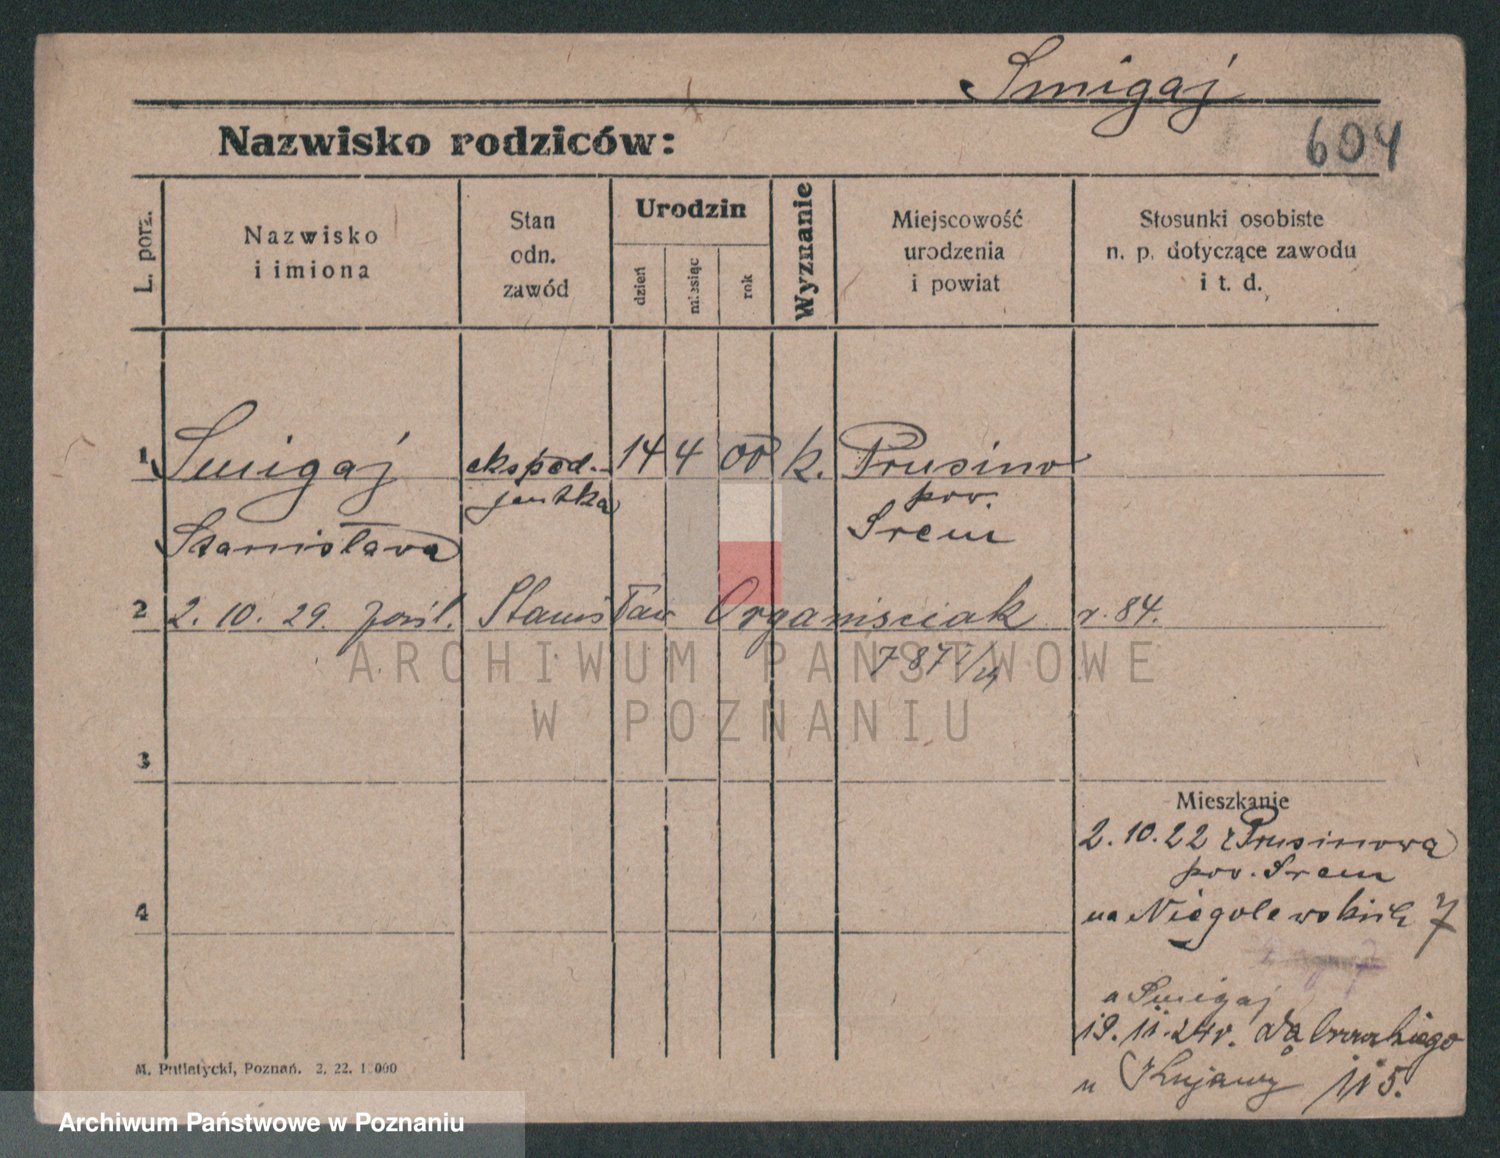 Smigaj
Nazwisko rodziców:
604
L. porz.
Nazwisko
i imiona
Stan
odn.
zawód
Urodzin
dzień
miesiąc
rok
Wyznanie
Miejscowość
urodzenia
i powiat
Stosunki osobiste
n. p. dotyczące zawodu
i t. d.
1 Smigaj ekspod- 14 4 00 k. Prusinowo
jentka pow.
Stanisława Srem
2 2. 10. 29. pośl. Stanisław Organisciak r. 84.
ARCHIWUM PAŃSTWOWE
W POZNANIU
3
Mieszkanie
2. 10. 22 z Prusinowa
pow. Srem
4
na Niegolewskich 7
u Smigaj
19. 11. 24r. Dąbrowskiego
u Kujawy 115.
M. Putiatycki, Poznań. 2. 22. 1 000
Archiwum Państwowe w Poznaniu